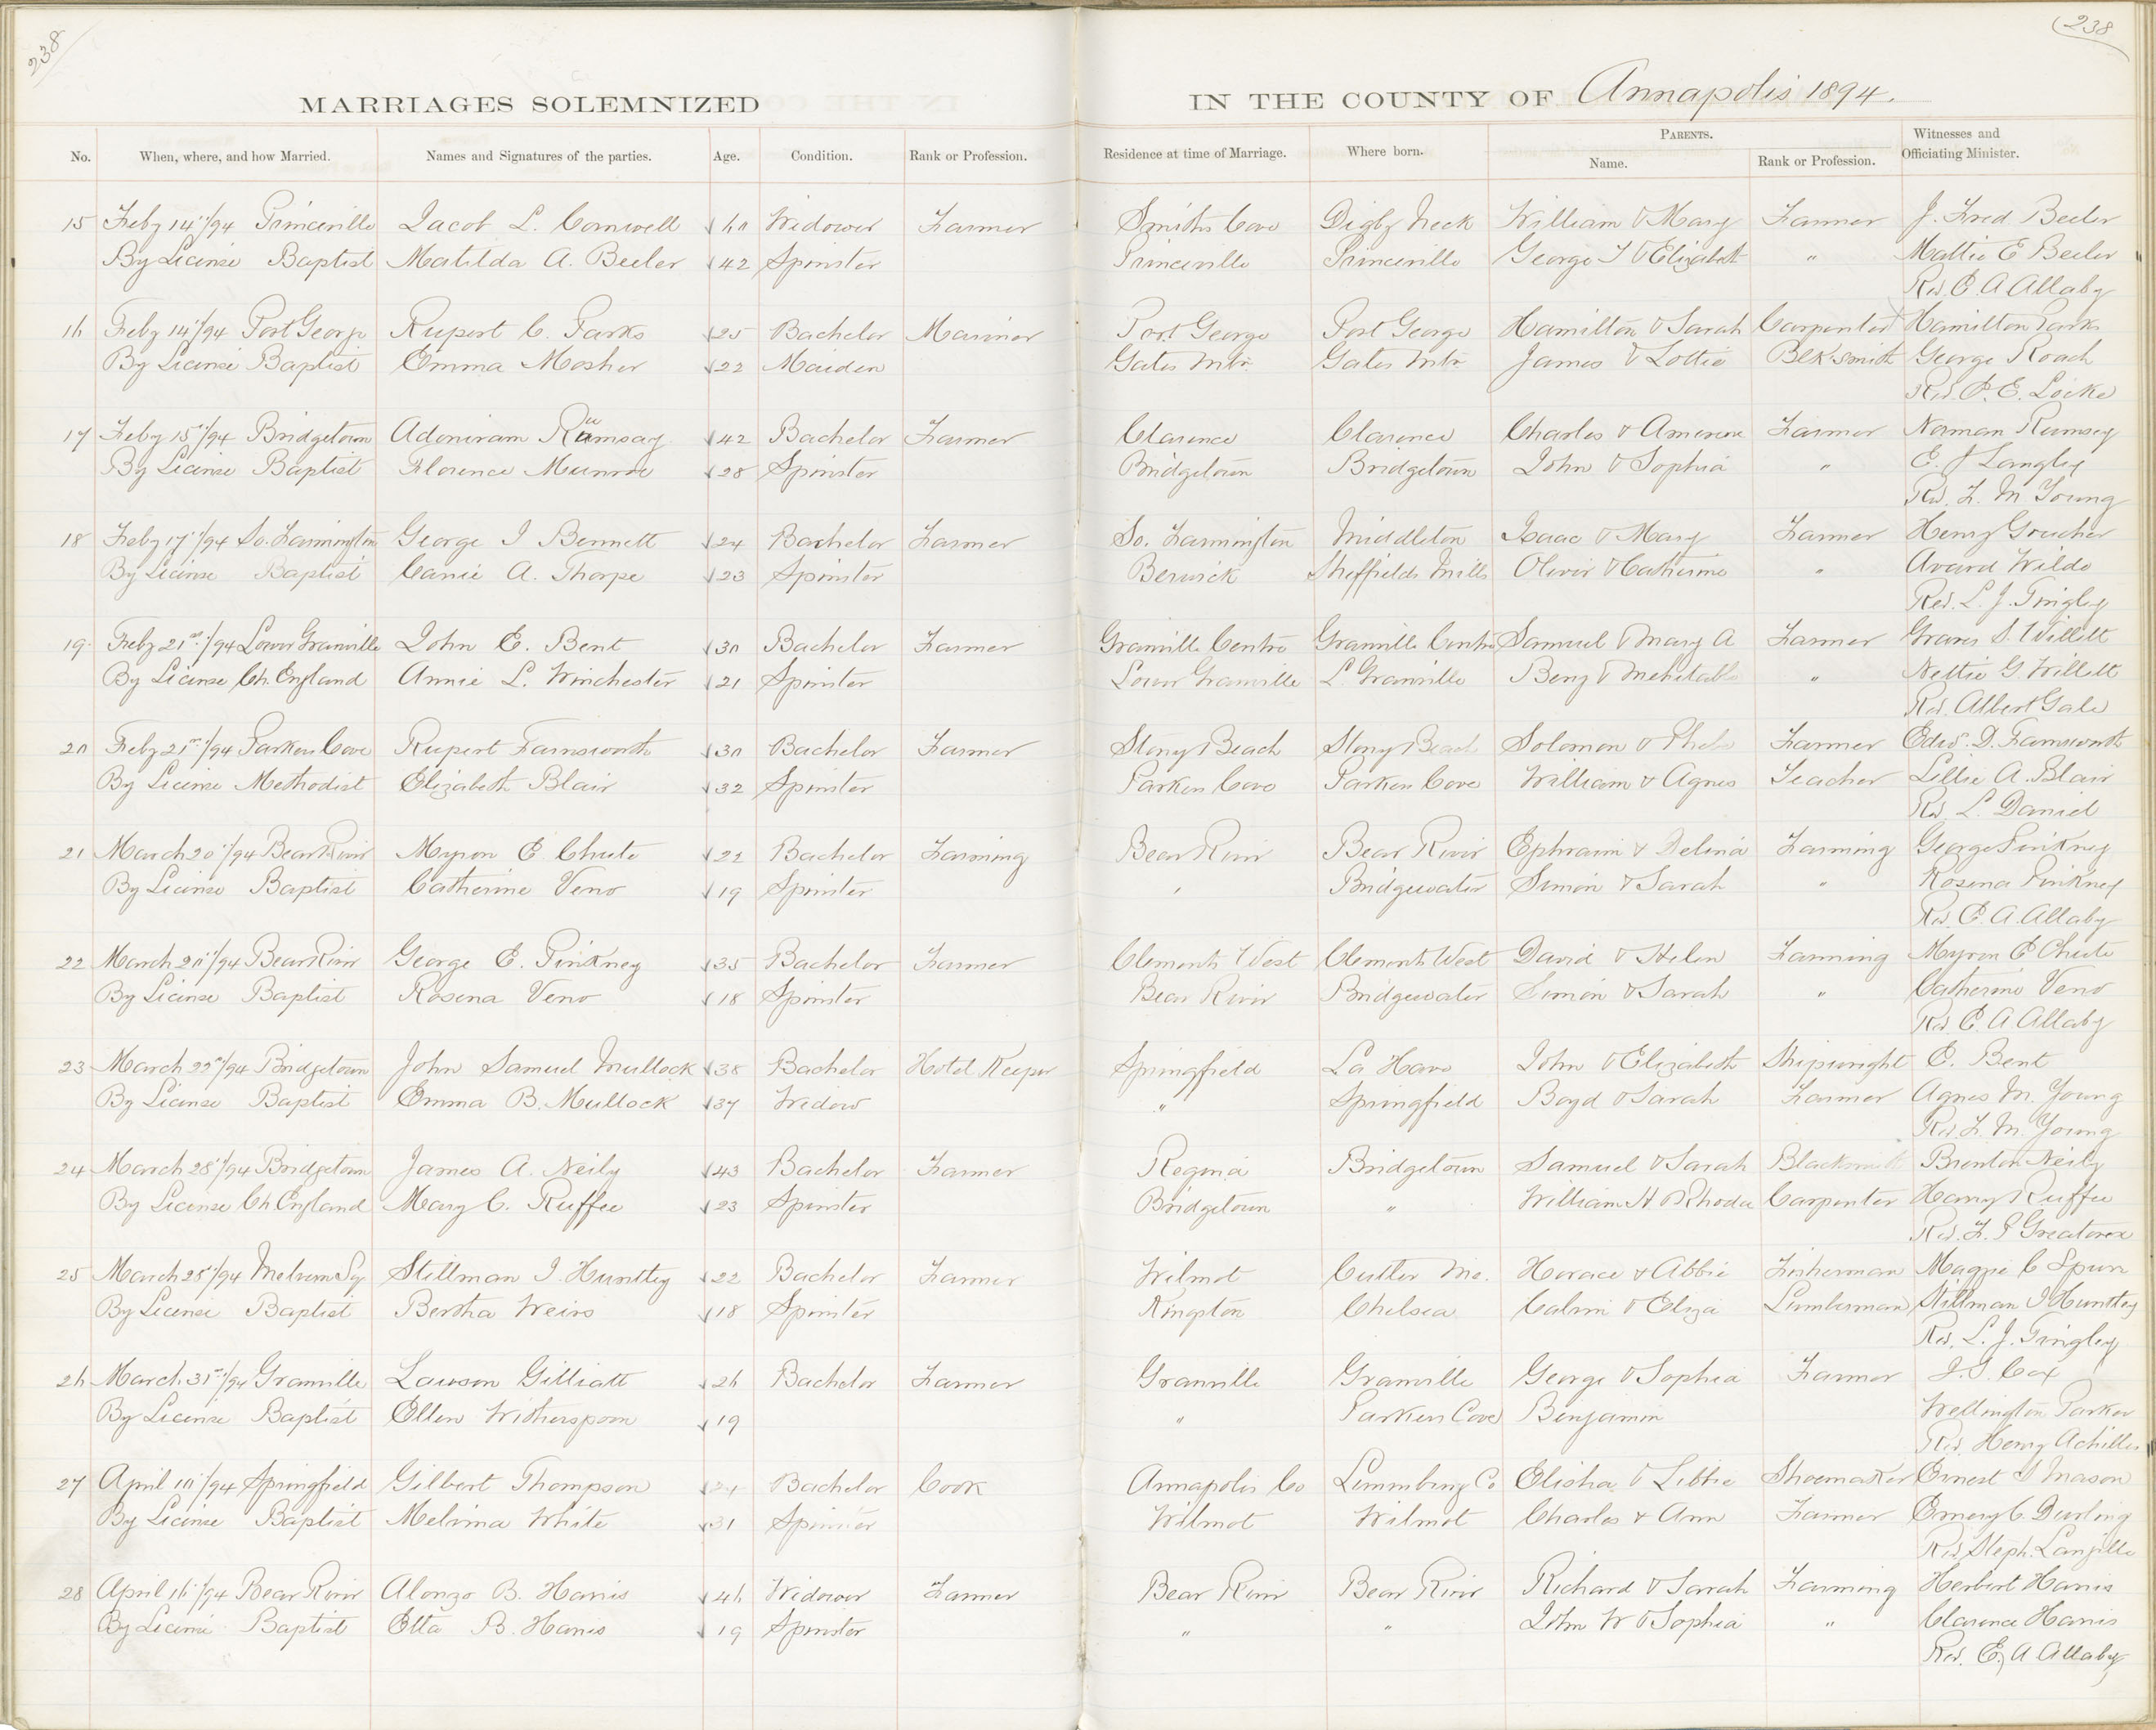 238
238
MARRIAGES SOLEMNIZED IN THE COUNTY OF Annapolis 1894.
No. When, where, and how Married. Names and Signatures of the parties. Age. Condition. Rank or Profession. Residence at time of Marriage. Where born. PARENTS. Name. Rank or Profession. Witnesses and Officiating Minister.
15 Feby 14"/94 Princeville Jacob L. Cornwell 60 Widower Farmer Smiths Cove Digby Neck William & Mary Farmer J. Fred Beeler
By License Baptist Matilda A. Beeler 42 Spinster Princeville Princeville George T & Elizabeth " Mattie E Beeler
Rev. E. A Allaby
16 Feby 14"/94 Port George Rupert C. Parks 25 Bachelor Mariner Port George Port George Hamilton & Sarah Carpenter Hamilton Parks
By License Baptist Emma Mosher 22 Maiden Gates Mtn Gates Mtn James & Lottie Blk.smith George Roach
Rev. P. E. Locke
17 Feby 15"/94 Bridgetown Adoniram Rumsay 42 Bachelor Farmer Clarence Clarence Charles & Farmer Norman Rumsey
By License Baptist Florence Munroe 28 Spinster Bridgetown Bridgetown John & Sophia " E. J Langley
Rev. F. M Young
18 Feby 17"/94 So. Farmington George I Bennett 24 Bachelor Farmer So. Farmington Middleton Isaac & Mary Farmer Henry Goucher
By License Baptist Canie A. Thorpe 23 Spinster Berwick Sheffields Mills Oliver & Catherine " Avard Wilde
Rev. L. J. Tingley
19 Feby 21st/94 Lower Granville John E. Bent 30 Bachelor Farmer Granville Centre Granville Centre Samuel & Mary A Farmer Graves S. Willett
By License Ch. England Annie L. Winchester 21 Spinster Lower Granville L. Granville Benj & Mehitable " Nettie G. Willett
Rev. Albert Gale
20 Feby 21st/94 Parkers Cove Rupert Farnsworth 30 Bachelor Farmer Stony Beach Stony Beach Solomon & Farmer Edw. D. Farnsworth
By License Methodist Elizabeth Blair 32 Spinster Parkers Cove Parkers Cove William & Agnes Teacher Lillie A. Blair
Rev L. Daniel
21 March 20"/94 Bear River Myron E Chute 22 Bachelor Farming Bear River Bear River Ephraim & Delina Farming George Pinkney
By License Baptist Catherine Veno 19 Spinster " Bridgewater Simon & Sarah " Rosena Pinkney
Rev. E. A. Allaby
22 March 20"/94 Bear River George E. Pinkney 35 Bachelor Farmer Clements West Clements West David & Helen Farming Myron E Chute
By License Baptist Rosena Veno 18 Spinster Bear River Bridgewater Simon & Sarah " Catherine Veno
Rev. E. A Allaby
23 March 22nd/94 Bridgetown John Samuel Mullock 38 Bachelor Hotel Keeper Springfield La Have John & Elizabeth Shipwright E. Bent
By License Baptist Emma B. Mullock 37 Widow " Springfield Boyd & Sarah Farmer Agnes M. Young
Rev. F. M. Young
24 March 28"/94 Bridgetown James A. Neily 43 Bachelor Farmer Regina Bridgetown Samuel & Sarah Blacksmith Brenton Neily
By License Ch England Mary C. Ruffee 23 Spinster Bridgetown " William H & Rhoda Carpenter Harry Ruffee
Rev. F. P Greatorex
25 March 28"/94 Melvern Sq. Stillman I. Huntley 22 Bachelor Farmer Wilmot Cutler Me. Horace & Abbie Fisherman Maggie C Spurr
By License Baptist Bertha Weirs 18 Spinster Kingston Chelsea Calvin & Eliza Lumberman Stillman I Huntley
Rev. L. J. Tingley
26 March 31st/94 Granville Lawson Gilliatt 26 Bachelor Farmer Granville Granville George & Sophia Farmer J. S. Cox
By License Baptist Ellen Witherspoon 19 " Parkers Cove Benjamin Wellington Parker
Rev. Henry Achilles
27 April 10"/94 Springfield Gilbert Thompson 24 Bachelor Cook Annapolis Co Lunenburg Co Elisha & Libbie Shoemaker Ernest S Mason
By License Baptist Melvina White 31 Spinster Wilmot Wilmot Charles & Ann Farmer Emery C. Durling
Rev. Steph. Langille
28 April 16"/94 Bear River Alonzo B. Harris 46 Widower Farmer Bear River Bear River Richard & Sarah Farming Herbert Harris
By License Baptist Etta B. Harris 19 Spinster " " John W & Sophia " Clarence Harris
Rev. E. A Allaby